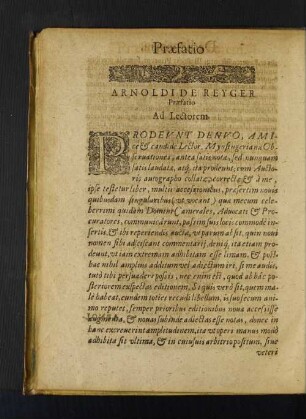 Præfatio
ARNOLDI DE REYGER
Præfatio
Ad Lectorem
PRODEUNT DENUO, AMI-
ce & candide Lector, Mynsingerianæ Ob-
servationes, antea satis notæ, sed nunquam
satis laudatæ, atq; ita prodeunt, cum Aucto-
ris autographo collatæ, correctæ & à me,
ipse testetur liber, multis accessionibus, præsertim novis
quibusdam singularibus (ut vocant) quæ mecum cele-
berrimi quidam Domini Camerales, Advocati & Pro-
curatores, communicarunt, passim suis locis commodè in-
sertis, & ibi reperiendis auctæ, ut parum absit, quin novi
nomen sibi adsciscant commentarij, deniq; ita etiam pro-
deunt, ut iam extremam adhibitam esse limam, & post-
hac nihil amplius additum vel adiectum iri, si me audis,
tutò tibi persuadere possis, nec enim est, quod ad hâc po-
steriorem exspectas editionem. Si quis verò sit, quem ma-
lè habeat, eundem toties recudi libellum, is suo secum ani-
mo reputet, semper prioribus editionibus nova accessisse
& novas subinde adiectas esse notas, donec in
hanc excreverint amplitudinem, ita ut operi manus modò
adhibita sit ultima, & in cuiusvis arbitrio positum, sive
veteri